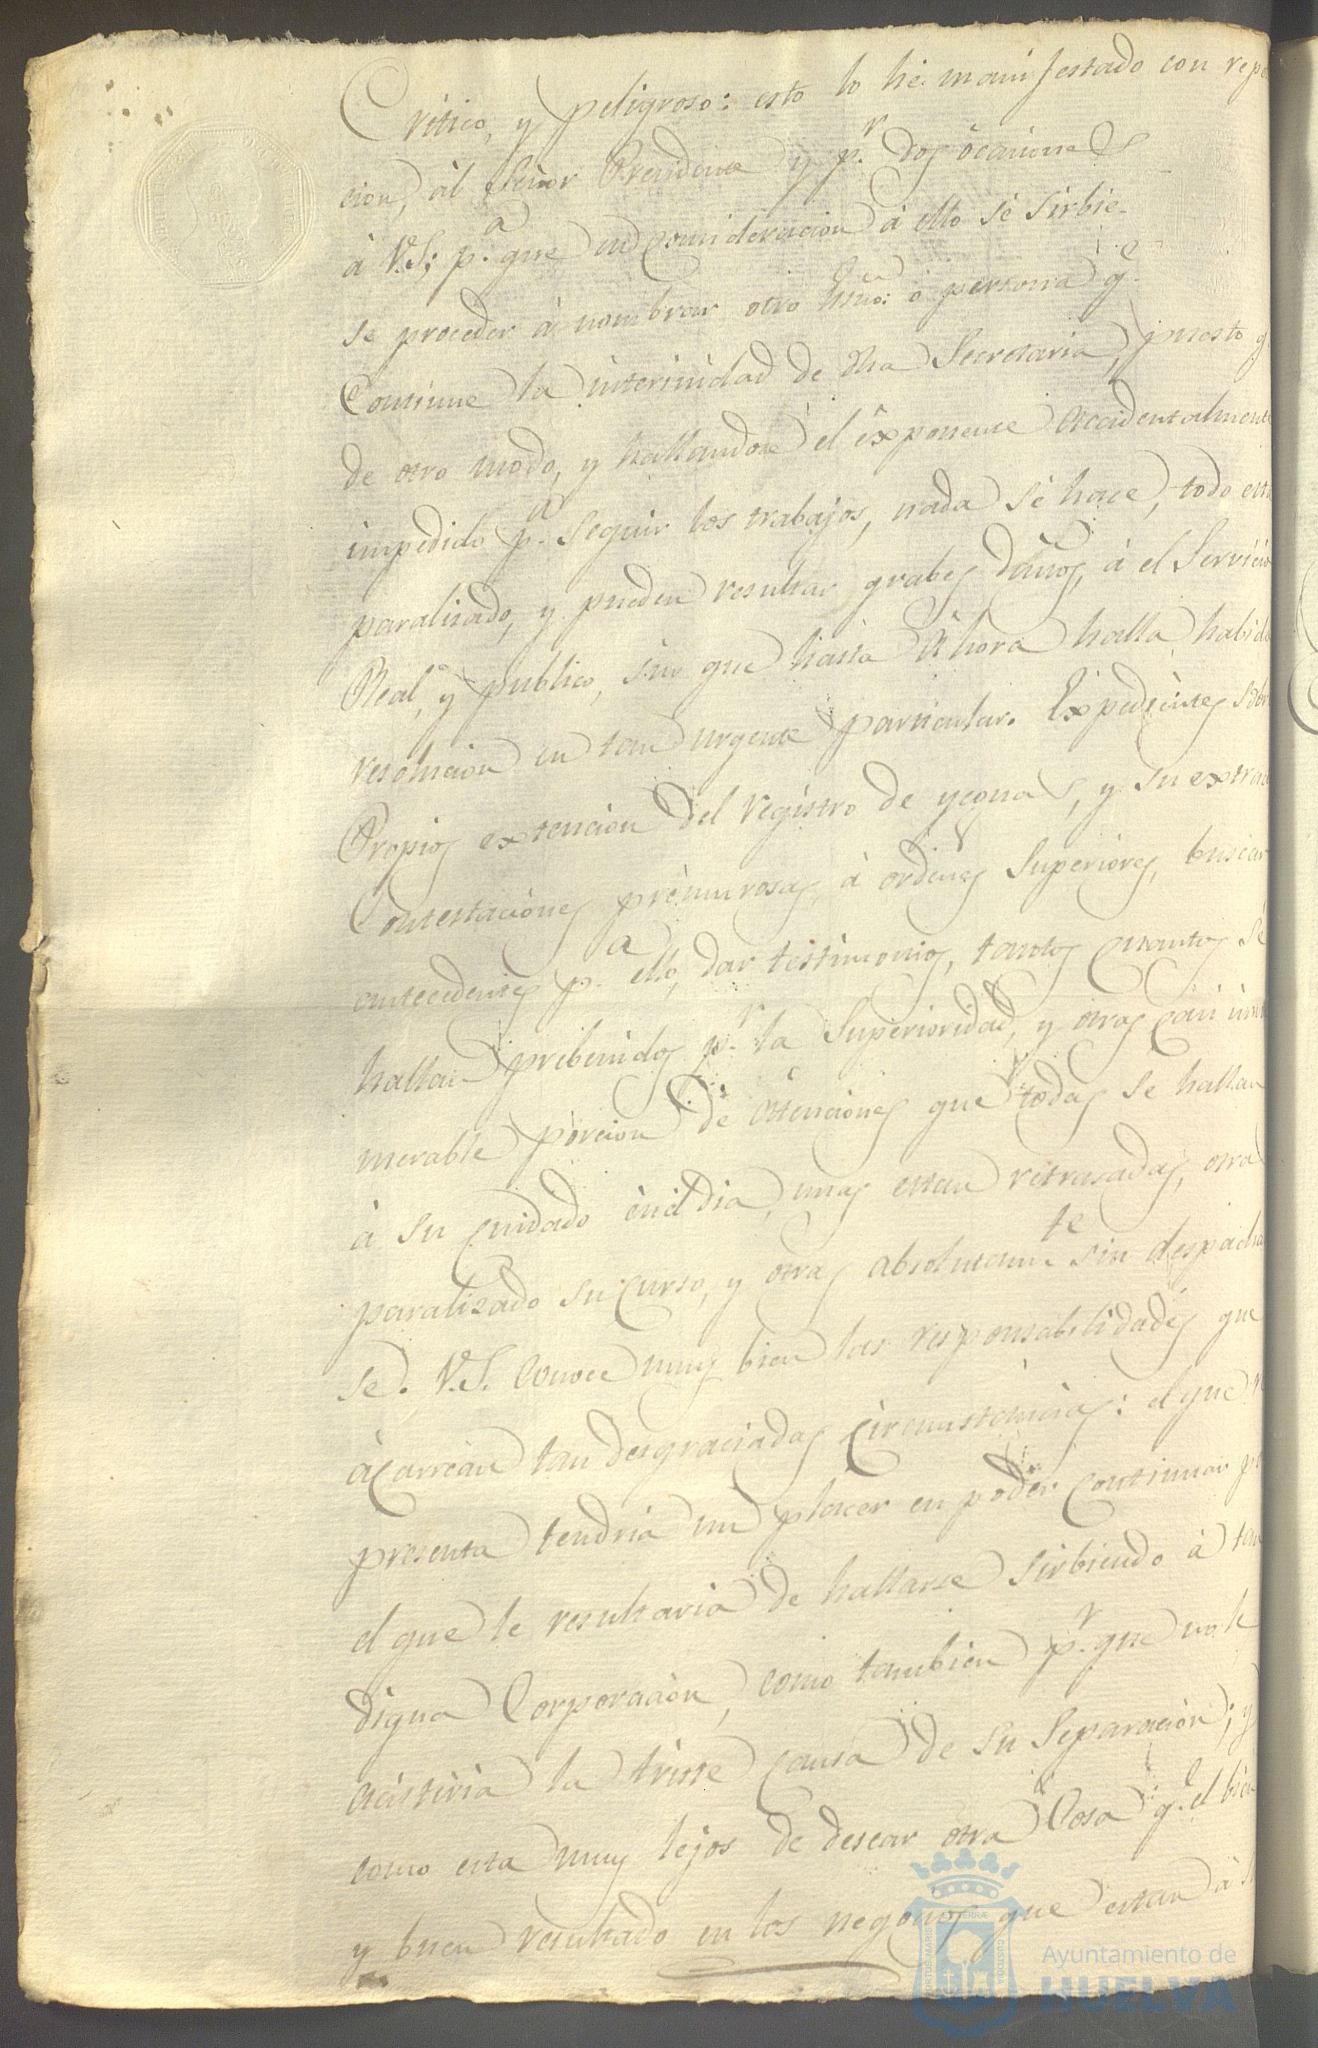 Critico, y peligroso: esto lo hé manifestado con repe
cion, ál Señor Precidente y p.r dos ócaciones
á V.S; p.a que en consideracion á ello sé sirbie-
se proceder á nombrar otro Esno: ó persona q.e
Continue la interinidad de dha Secretaria, puesto q
de otro modo, y hallandose él éxponente accidentalmente
impedido p.a seguir los trabajos, nada sé hace, todo esta
paralisado, y pueden resultar grabes daños, á el Servicio
Real, y publico, sin que hasta Ahora halla habido
resolucion en tan urgente particular. Expedientes sobre
Propios extencion del registro de yeguas, y su extrac
Contestaciones prémurosas, á ordenes Superiores, buscar
antecedentes p.a ello, dar testimonios, tantos quantos sé
hallan prebenidos p.r la Superioridad, y otras casi innu
merable porcion de átenciones que todas se hallan
á su cuidado én él dia, unas estan rétrasadas, otra
paralizado su curso, y otras absolutam.te sin despacha
se. V.S. Conoce muy bien las responsabilidades que
ácarréan tan desgraciadas circunstancias: el que
presenta tendria un placer en poder continuar p
el que le resultaria de hallarse sirbiendo á tan
digna Corporacion, como tambien p.r que no le
acistiria la triste causa de su Separacion; y
como esta muy lejos de desear otra Cosa q.e el bien
y buen resultado en los negocios que estan á s
Ayuntamiento de
HUELVA